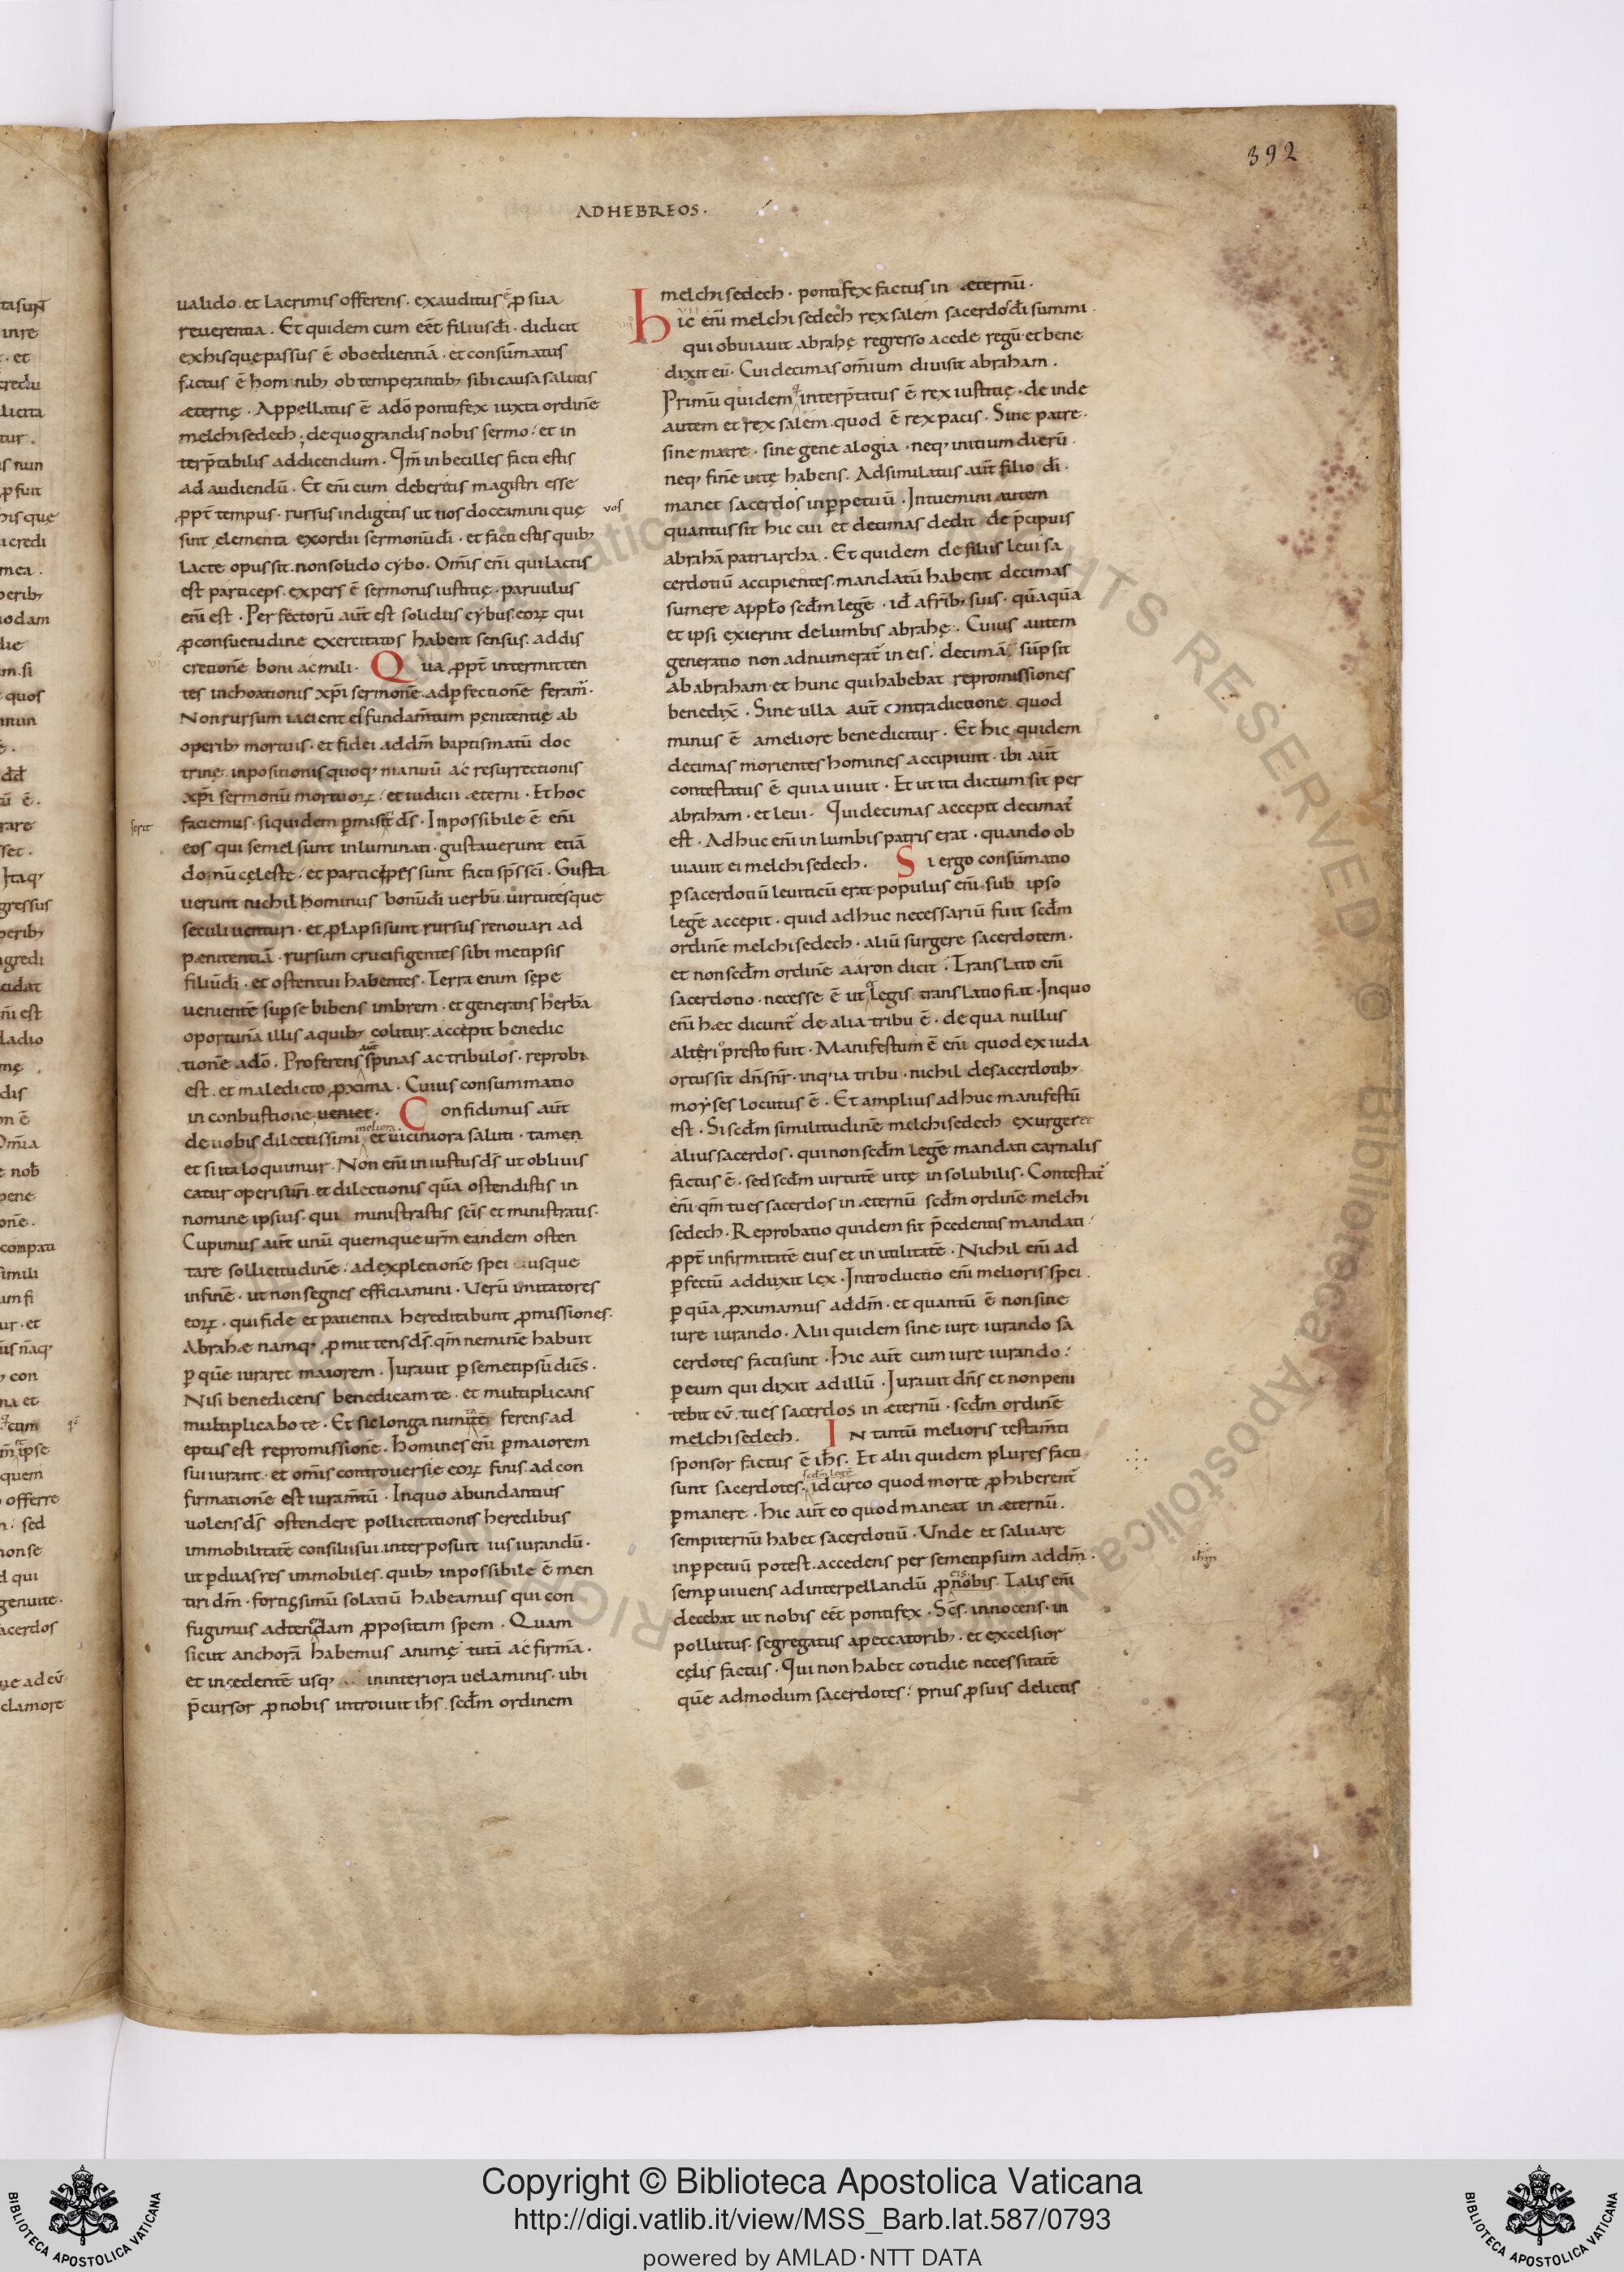 392
ADHEBREOS.
ualido. et lacrimis offerens. exauditus ē ꝓ sua
reuerentia. Et quidem cum eēt filius dī. didicit
ex his que passus ē oboedientiā. et consūmatus
factus ē hominibꝫ obtemperantibꝫ sibi causa salutis
æternę. Appellatus ē adō pontifex iuxta ordinē
melchisedech; de quo grandis nobis sermo. et in
terp̄tabilis addicendum. Qm̄ inbecilles facti estis
ad audiendū. Et eni cum deberitis magistri esse
ꝓpt̄ tempus. rursus indigetis ut uos doceamini quę
uos
sint elementa exordii sermonū dī. et facti estis quibꝫ
lacte opus sit. non solido cybo. Om̄is eni qui lactis
est particeps. expers ē sermonis iustitię. paruulus
eni est. Perfectorū aut̄ est solidus cybus. eoꝝ qui
ꝓ consuetudine exercitatos habent sensus. ad dis
cretionē boni ac mali. Qua ꝓpt̄ intermitten
tes inchoationis xp̄i sermonē. ad ꝑfectionē feram̄.
Non rursum iacientes fundam̄tum pęnitentię ab
operibꝫ mortuis. et fidei addm̄ baptismatū doc
trinę. inpositionis quoqꝫ manuū ac resurrectionis
xp̄i sermonū mortuoꝝ. et iudicii æterni. Et hoc
faciemus. siquidem ꝑmiserit ds̄. Inpossibile ē eni
serit
eos qui semel sunt inluminati. gustauerunt etiā
donū cęleste. et participes sunt facti sp̄s sc̄i. Gusta
uerunt nichilhominus bonū dī uerbū. uirtutesque
seculi uenturi. et ꝓlapsi sunt. rursus renouari ad
pænitentiā. rursum crucifigentes sibimetipsis
filiū dī. et ostentui habentes. Terra enim sępe
uenientē sup se bibens imbrem. et generans herbā
oportunā illis a quibꝫ colitur. accepit benedic
tionē adō. Proferens aut̄ spinas ac tribulos. reproba
est. et maledicto ꝓxima. Cuius consummatio
in conbustione ueniet. Confidimus aut̄
de uobis dilectissimi meliora. et uiciniora saluti. tamen
et si ita loquimur. Non eni iniustus ds̄ ut obliuis
catur operis ur̄i. et dilectionis quā ostendistis in
nomine ipsius. qui ministrastis sc̄is et ministratis.
Cupimus aut̄ unū quemque ur̄m eandem osten
tare sollicitudinē. ad expletionē spei usque
in finē. ut non segnes efficiamini. Uerū imitatores
eoꝝ. qui fide et patientia hereditabunt ꝓmissiones.
Abrahæ namqꝫ ꝓmittens ds̄. qm̄ neminē habuit
ꝑ quē iuraret maiorem. Iurauit ꝑ semetipsū dices.
Nisi benedicens benedicam te. et multiplicans
multiplicabo te. Et sic longanimiter ferens. ad
eptus est repromissionē. Homines eni ꝑ maiorem
sui iurant. et om̄is controuersię eoꝝ finis. ad con
firmationē est iuram̄tū. In quo abundantius
uolens ds̄ ostendere pollicitationis heredibus
immobilitatē consilii sui. interposuit iusiurandū.
ut ꝑ duas res immobiles. quibꝫ inpossibile ē men
tiri dm̄. fortissimū solatiū habeamus qui con
fugimus ad tenendam ꝓpositam spem. Quam
sicut anchorā habemus animę tutā ac firmā.
et incedentē usqꝫ in interiora uelaminis. ubi
p̄cursor ꝓ nobis introiuit ih̄s. scdm̄ ordinem
melchisedech. pontifex factus in æternū.
Hic eni melchisedech rex salem sacerdos dī summi.
qui obuiauit abrahę regresso a cede regū. et bene
dixit ei. Cui decimas om̄ium diuisit abraham.
Primū quidem q interp̄tatus ē rex iustitię. deinde
autem et rex salem. quod ē rex pacis. Sine patre.
sine matre. sine genealogia. neqꝫ initium dierū
neqꝫ finē uitę habens. Adsimilatus aut̄ filio dī.
manet sacerdos in ꝑpetuū. Intuemini autem
quantus sit hic cui et decimas dedit de p̄cipuis
abrahā patriarcha. Et quidem de filiis leui sa
cerdotiū accipientes. mandatū habent decimas
sumere a pp̄lo scdm̄ legē. id ē a fr̄ibꝫ suis. quāquā
et ipsi exierint de lumbis abrahę. Cuius autem
generatio non adnumerat̄ in eis. decimā sūpsit
ab abraham. et hunc qui habebat repromissiones
benedix̄. Sine ulla aut̄ contradictione. quod
minus ē a meliore benedicitur. Et hic quidem
decimas morientes homines accipiunt. ibi aut̄
contestatus ē quia uiuit. Et ut ita dictum sit per
abraham. et leui. Qui decimas accepit decimat̄
est. Adhuc eni in lumbis patris erat. quando ob
uiauit ei melchisedech. Si ergo consūmatio
ꝑ sacerdotiū leuiticū erat populus eni sub ipso
legē accepit. quid adhuc necessariū fuit scdm̄
ordinē melchisedech. aliū surgere sacerdotem.
et non scdm̄ ordinē aaron dicit. Translato eni
sacerdotio. necesse ē ut & legis translatio fiat. In quo
eni hæc dicunt̄ de alia tribu ē. de qua nullus
altari presto fuit. Manifestum ē eni quod ex iuda
ortus sit dn̄s nr̄. in qua tribu. nichil de sacerdotibꝫ
moyses locutus ē. Et amplius adhuc manifestū
est. Si scdm̄ similitudinē melchisedech exurgeret
alius sacerdos. qui non scdm̄ legē mandati carnalis
factus ē. sed scdm̄ uirtutē uitę insolubilis. Contestat̄
eni qm̄ tu es sacerdos in æternū scdm̄ ordinē melchi
sedech. Reprobatio quidem fit p̄cedentis mandati
ꝓpt̄ infirmitatē eius et inutilitatē. Nichil eni ad
ꝑfectū adduxit lex. Introductio eni melioris spei.
ꝑ quā ꝓximamus addm̄. et quantū ē non sine
iure iurando. Alii quidem sine iure iurando sa
cerdotes facti sunt. Hic aut̄ cum iure iurando.
ꝑ eum qui dixit ad illū. Iurauit dn̄s et non peni
tebit eū. tu es sacerdos in æternū. scdm̄ ordinē
melchisedech. In tantū melioris testam̄ti
sponsor factus ē ih̄s. Et alii quidem plures facti
sunt sacerdotes. scdm̄ legē idcirco quod morte ꝓhiberent̄
ꝑmanere. Hic aut̄ eo quod maneat in æternū.
sempiternū habet sacerdotiū. Unde et saluare
in ꝑpetuū potest. accedens per semetipsum addm̄.
semꝑ uiuens ad interpellandū ꝓ nobis. eis Talis eni
decebat ut nobis eēt pontifex. Sc̄s. innocens. in
pollutus. segregatus a peccatoribꝫ. et excelsior
cęlis factus. Qui non habet cotidie necessitatē
quē admodum sacerdotes. prius ꝓ suis delictis
Copyright © Biblioteca Apostolica Vaticana
http://digi.vatlib.it/view/MSS_Barb.lat.587/0793
powered by AMLAD·NTT DATA
BIBLIOTECA APOSTOLICA VATICANA
BIBLIOTECA APOSTOLICA VATICANA